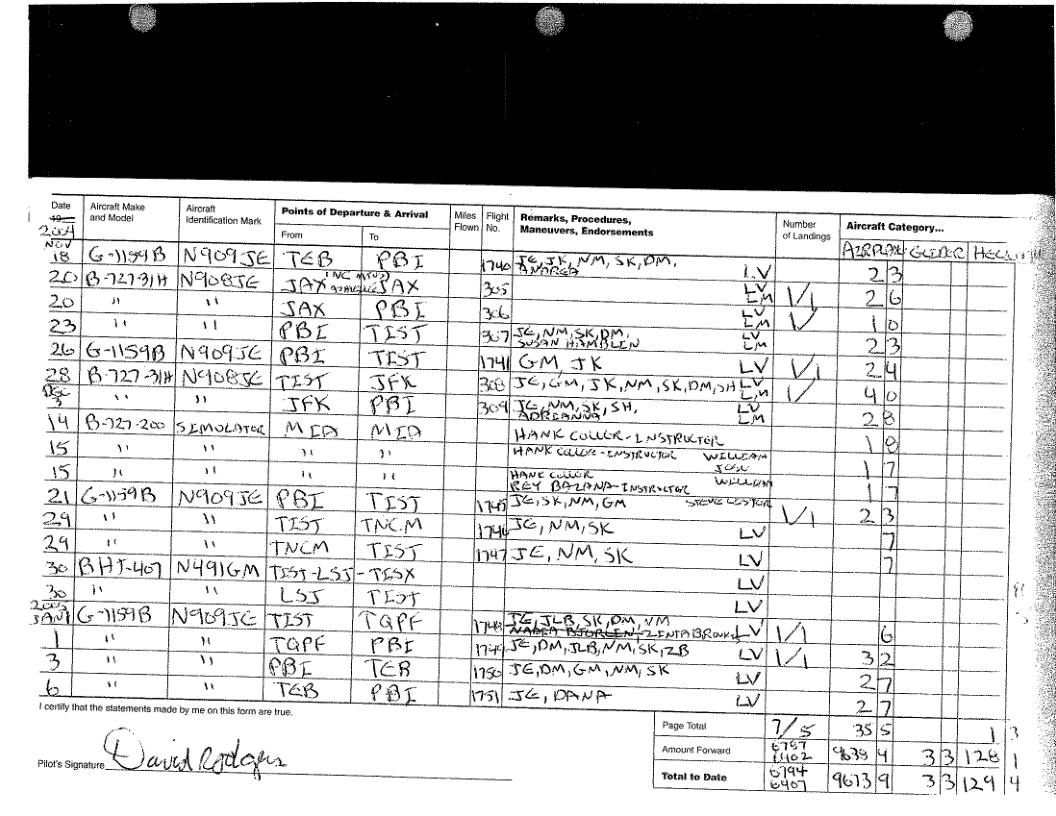 Date Aircraft Make and Model Aircraft Identification Mark Points of Departure & Arrival Miles Flown Flight No. Remarks, Procedures, Maneuvers, Endorsements Number of Landings Aircraft Category...
19 2004 From To AIRPLANE GLIDER
NOV 18 G-1159B N909JE TEB PBI 1740 JE, JK, NM, SK, DM, ANDREA LV 2 3
20 B-727-31H N908JE JAX JAX 305 LV LM 1/1 2 6
20 " " JAX PBI 306 LV LM 1/ 1 0
23 " " PBI TIST 307 JE, NM, SK, DM, SUSAN HAMBLIN LV LM 2 3
26 G-1159B N909JE PBI TIST 1741 GM, JK LV 1/1 2 4
28 B-727-31H N908JE TIST JFK 308 JE, GM, JK, NM, SK, DM, SH LV LM 1/ 4 0
DEC 3 " " JFK PBI 309 JE, NM, SK, SH, ADREANNA LV LM 2 8
14 B-727-200 SIMULATOR MIA MIA HANK COLLER-INSTRUCTOR 1 8
15 " " " " HANK COLLER-INSTRUCTOR WILLIAM JOSE 1 7
15 " " " " HANK COLLER REY BAZANA-INSTRUCTOR WILLIAM 1 7
21 G-1159B N909JE PBI TIST 1745 JE, SK, NM, GM STEVE LESTER 1/1 2 3
29 " " TIST TNCM 1746 JE, NM, SK LV 7
29 " " TNCM TIST 1747 JE, NM, SK LV 7
30 BHT-407 N491GM TIST-LSJ-TISX LV
30 " " LSJ TIST LV
2005 JAN 1 G-1159B N909JE TIST TQPF 1748 JE, JLB, SK, DM, VM ZINTA BROUKIS LV 1/1 6
1 " " TQPF PBI 1749 JE, DM, JLB, NM, SK, ZB LV 1/1 3 2
3 " " PBI TEB 1750 JE, DM, GM, NM, SK LV 2 7
6 " " TEB PBI 1751 JE, DANA LV 2 7
I certify that the statements made by me on this form are true.
Page Total 7/5 35 5 1 3
Amount Forward 6787 6402 9638 4 3 3 128 1
Pilot's Signature David Rodgers
Total to Date 6794 6407 9673 9 3 3 129 4